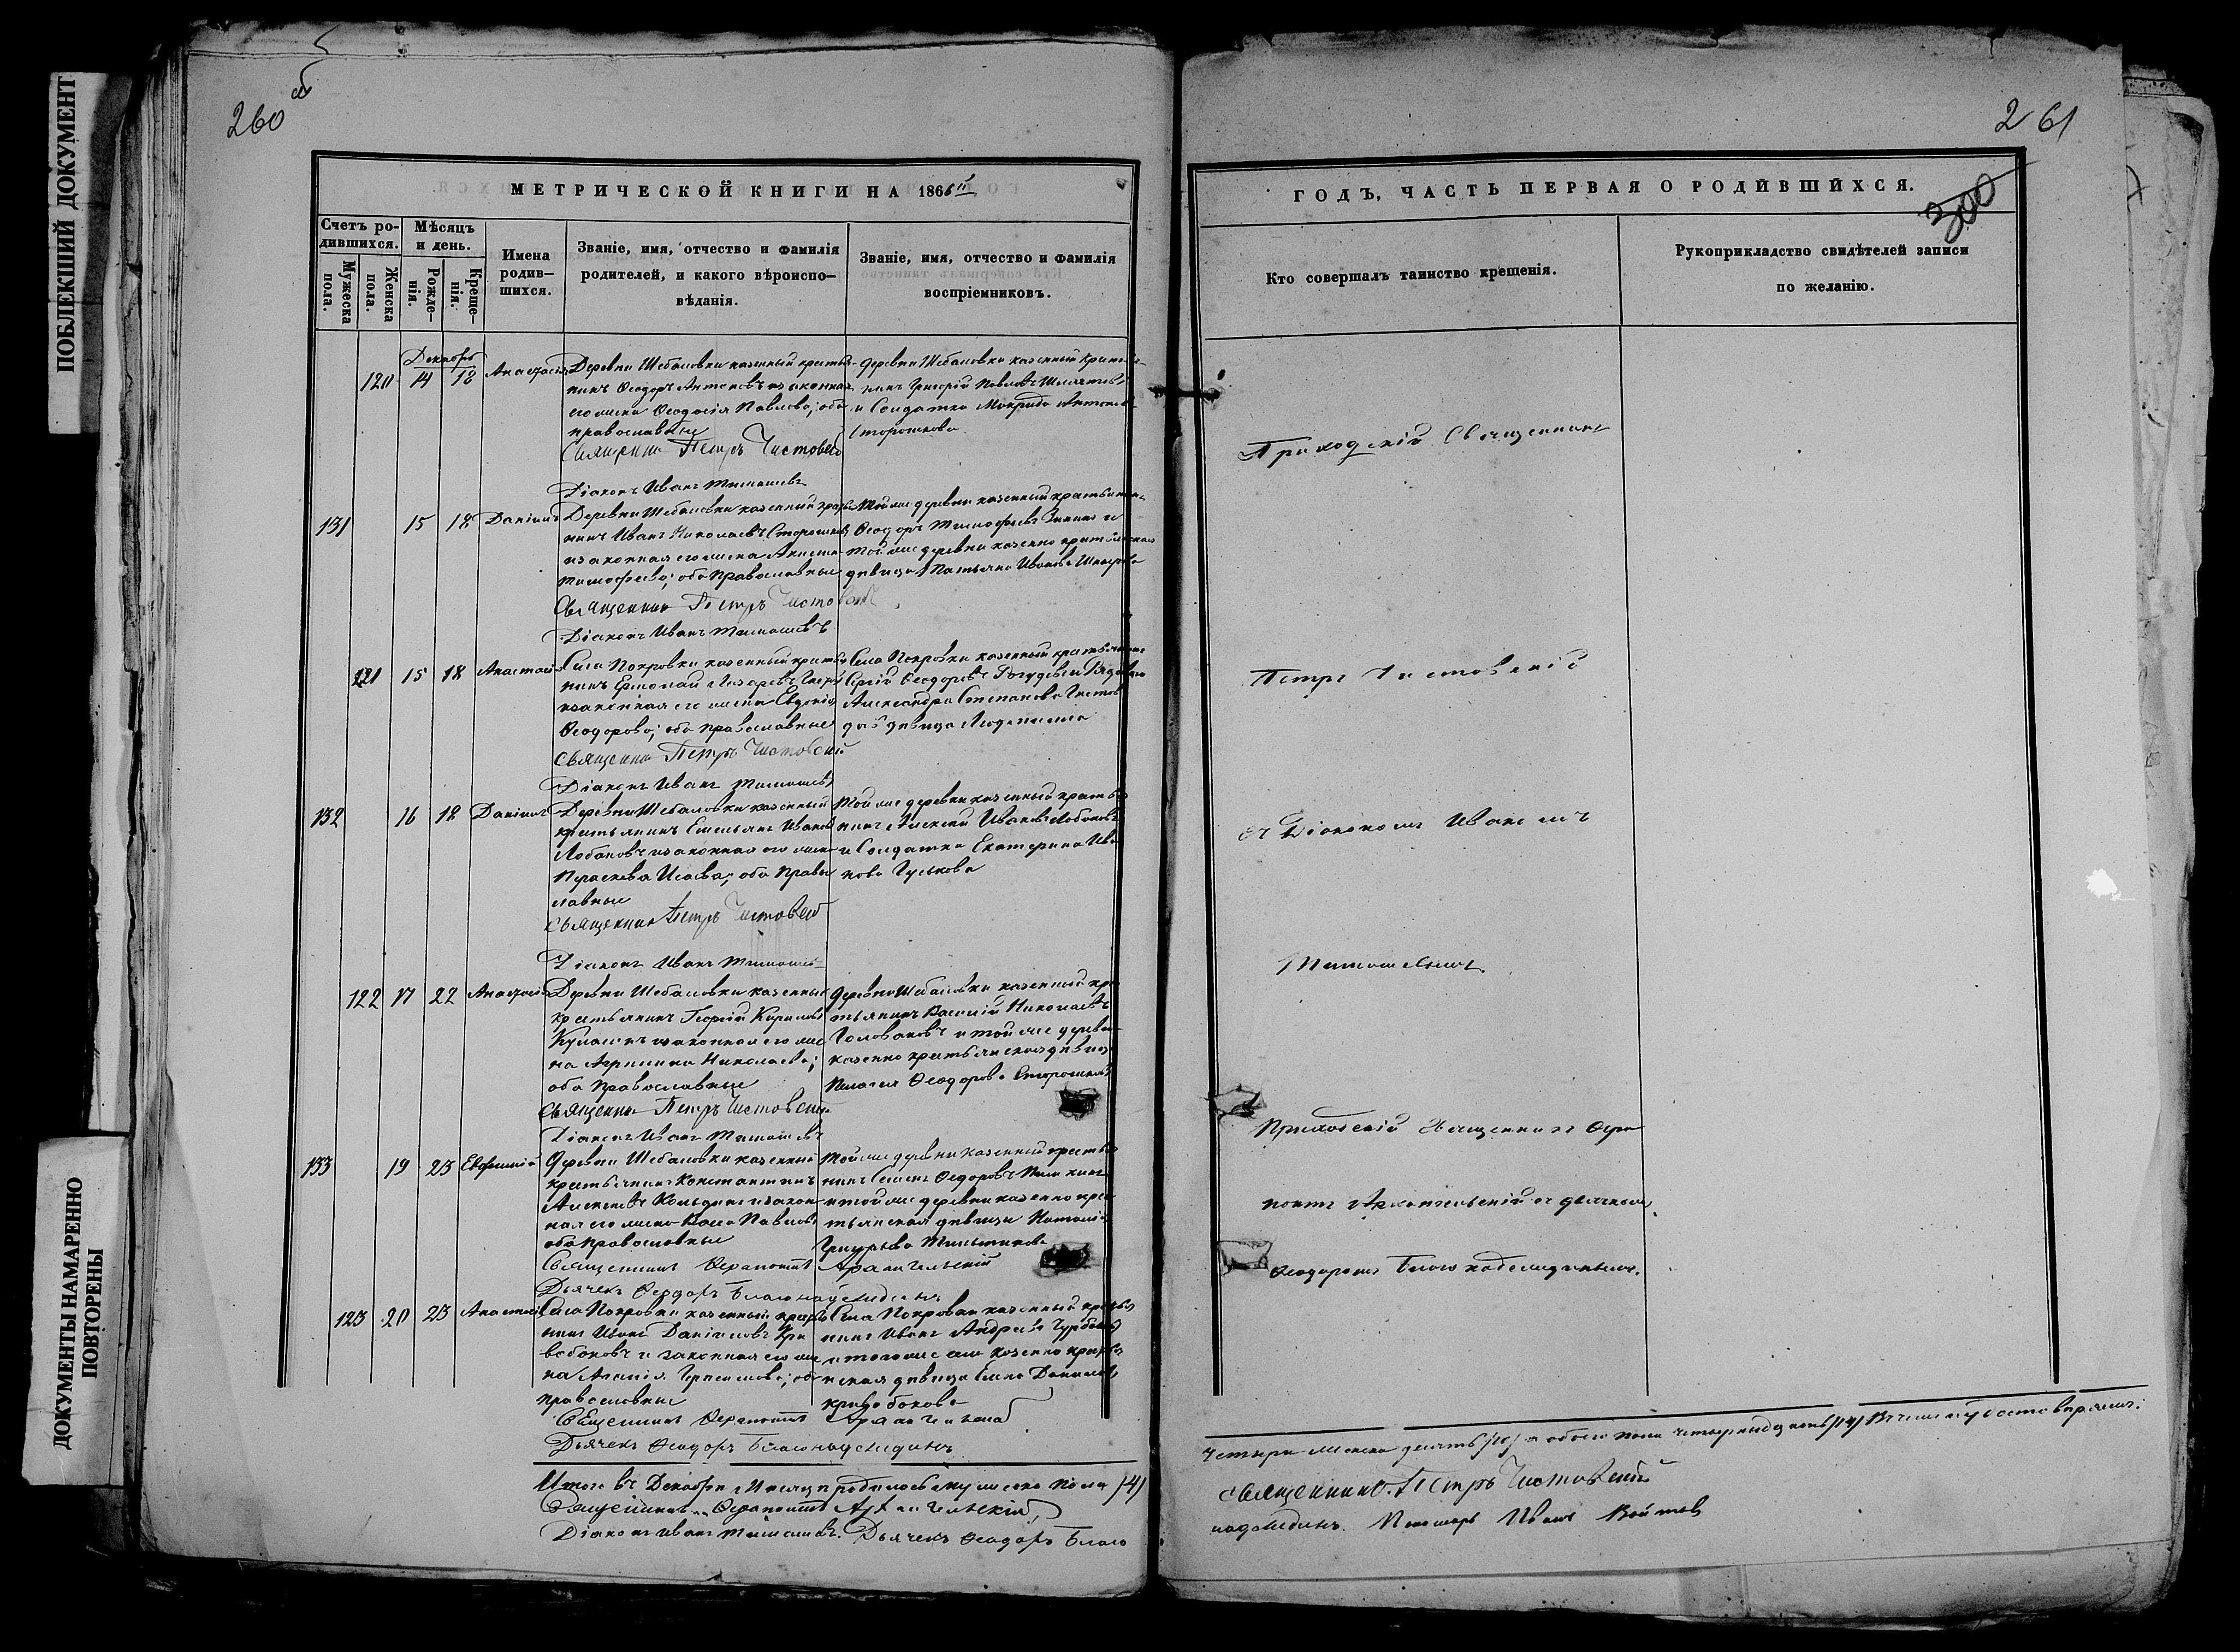 ПОБЛЕКШИЙ ДОКУМЕНТ
ДОКУМЕНТЫ НАМАРЕННО
ПОВТОРЕНЫ
260 об
МЕТРИЧЕСКОЙ КНИГИ НА 1866
Счетъ ро-
дившихся.
Мужеска
пола.
Женска
пола.
Мѣсяцъ
и день.
Рожде-
нія.
Креще-
нія.
Имена
родив-
шихся.
Званіе, имя, отчество и фамилія
родителей, и какого вѣроиспо-
вѣданія.
Званіе, имя, отчество и фамилія
воспріемниковъ.
Декабрь
120 14 18 Анастасія
Деревни Шебаловки казенный крестья-
нинъ Ѳеодоръ Антоновъ и законная
его жена Ѳеодосія Павлова; оба
православные
Священникъ Петръ Чистовскій
Діаконъ Иванъ Тимошевъ
деревни Шебаловки казенный крестья-
нинъ Григорій Павловъ
и Солдатка Макрида Антонова
Сторожкова
131 15 18 Даніилъ
Деревни Шебаловки казенный крестья-
нинъ Иванъ Николаевъ Сторожковъ
и законная его жена
Тимофеева; оба Православные
Священникъ Петръ Чистовскій
Діаконъ Иванъ Тимошевъ
Той же деревни казенный крестьянинъ
Ѳеодоръ Тимофеевъ и
той же деревни казенно крестьянская
девица Татьяна Иванова
121 15 18 Анастасія
Села Покровки казенный крестья-
нинъ Ермолай Лазаревъ
и законная его жена Евдокія
Ѳеодорова; оба православные
Священникъ Петръ Чистовскій
Діаконъ Иванъ Тимошевъ
Села Покровки казенный крестьянинъ
Сергій Ѳеодоровъ и
Александра Степанова
девица Людмила
132 16 18 Даніилъ
Деревни Шебаловки казенный
крестьянинъ Емельянъ Ивановъ
Лобановъ и законная его жена
Параскева Исаева; оба Право
славные
Священникъ Петръ Чистовскій
Діаконъ Иванъ Тимошевъ
Той же деревни казенный крестья
нинъ Алексей Ивановъ Лобановъ
и Солдатка Екатерина Ива
нова Гуськова
122 17 22 Анастасія
Деревни Шебаловки казенный
крестьянинъ Георгій Кириловъ
и законная его же
на Агрипина Николаева;
оба Православные
Священникъ Петръ Чистовскій
Діаконъ Иванъ Тимошевъ
Деревни Шебаловки казенный кре
стьянинъ Василій Николаевъ
Головановъ и той же деревни
казенно крестьянская девица
Пелагея Ѳеодорова Сторожкова
133 19 23 Евфимій
Деревни Шебаловки казенный
крестьянинъ Константинъ
Алексеевъ и закон
ная его жена Павлова
оба Православные
Священникъ Ѳерапонтъ Архангельскій
Дьячекъ Ѳеодоръ Благонадеждинъ
Той же деревни казенный крестья
нинъ Семенъ Ѳедоровъ
и той же деревни казенно кре
стьянская девица Наталія
Григорьева
123 20 23 Анастасія
Села Покровки казенный крестья
нинъ Иванъ Даніиловъ Кри
вобоковъ и законная его же
на Герасимова; оба
православные
Священникъ Ѳерапонтъ Архангельскій
Дьячекъ Ѳеодоръ Благонадеждинъ
Села Покровки казенный крестья
нинъ Иванъ Андреевъ
и того же села казенно крестьян
ская девица Елена Данилова
Кривобокова
Итого въ Декабре Месяце родилось мужеска пола (4)
Священникъ Ѳерапонтъ Архангельскій
Діаконъ Иванъ Тимошевъ. Дьячекъ Ѳеодоръ Благо
261
300
ГОДЪ, ЧАСТЬ ПЕРВАЯ О РОДИВШИХСЯ.
Кто совершалъ таинство крещенія.
Рукоприкладство свидѣтелей записи
по желанію.
Приходскій Священникъ
Петръ Чистовскій
съ Діакономъ Иваномъ
Тимошевымъ.
Приходскій Священникъ Ѳера
понтъ Архангельскій съ дьячкомъ
Ѳеодоромъ Благонадеждинымъ.
четыре женска десять (10) а обоего пола четырнадцать (14) Въ чемъ и удостоверяемъ:
Священникъ Петръ Чистовскій
надеждинъ. Пономарь Иванъ